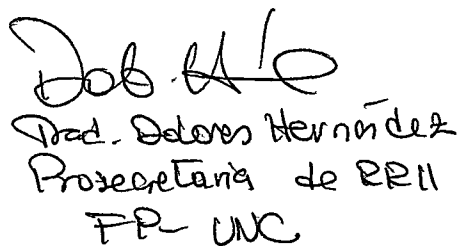 Trad. Dolores Hernández
Prosecretaria de RRII
FP- UNC